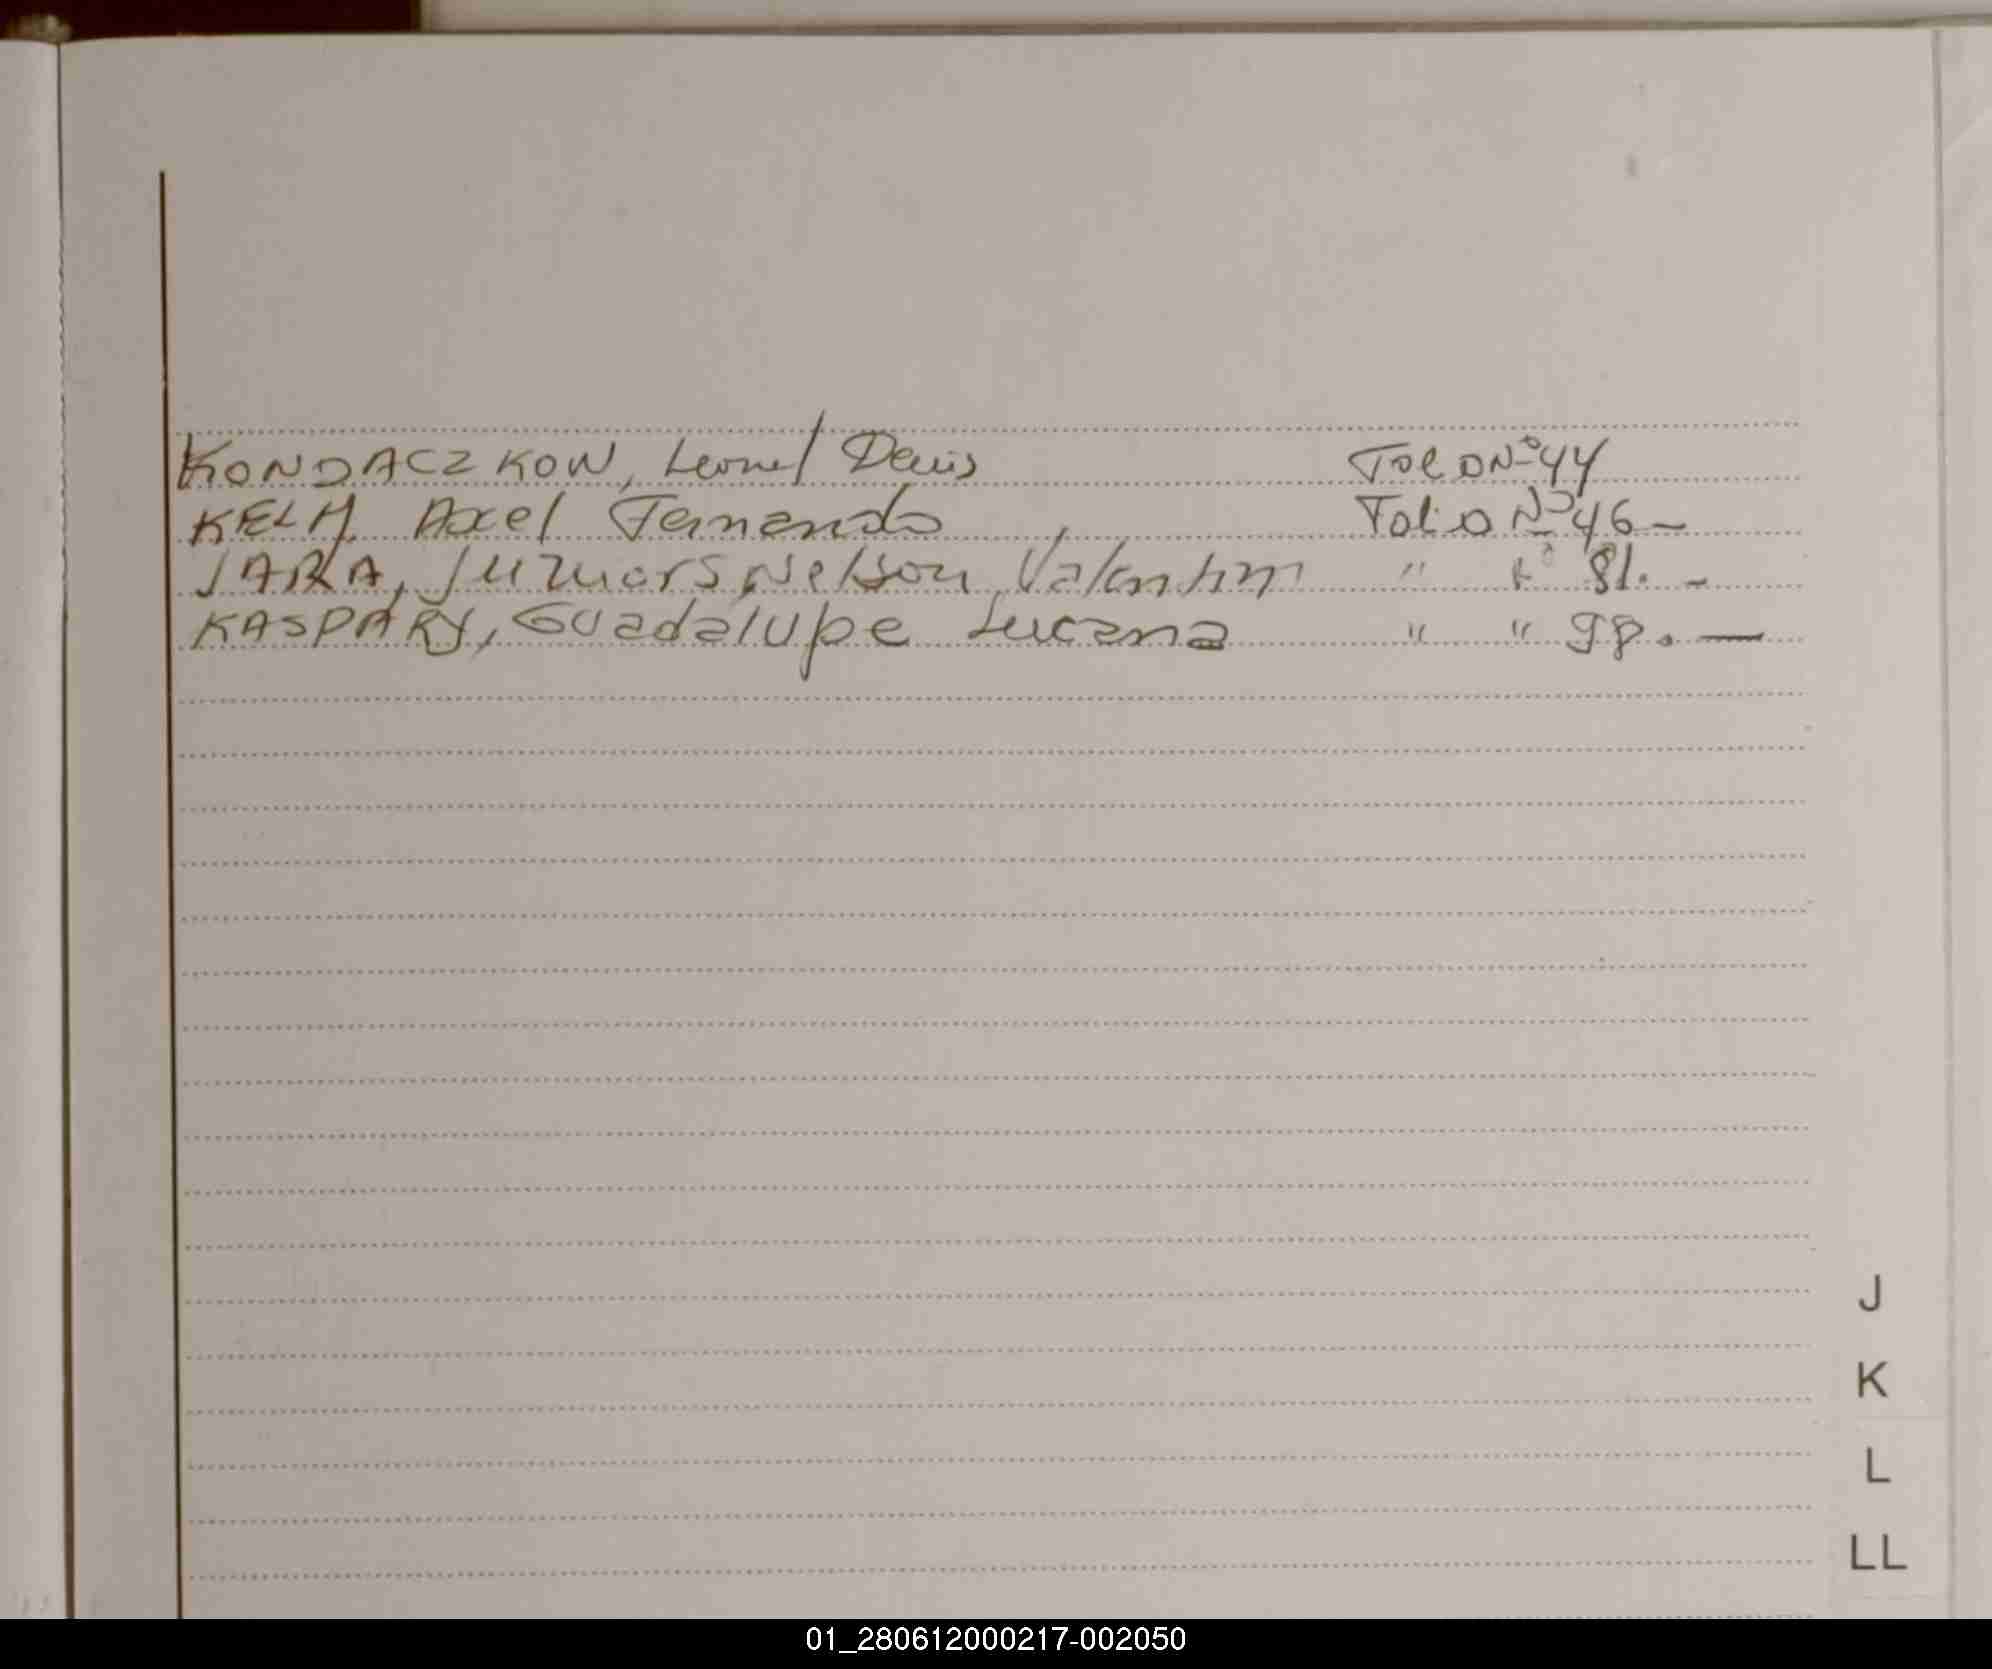 KONDACZKOW, Leonel Denis Folio Nº 44
KELM Axel Fernando Folio Nº 46 -
JARA, Nelson Valentim " " 81. -
KASPARY, Guadalupe Luciana " " 98. —
J
K
L
LL
01_280612000217-002050